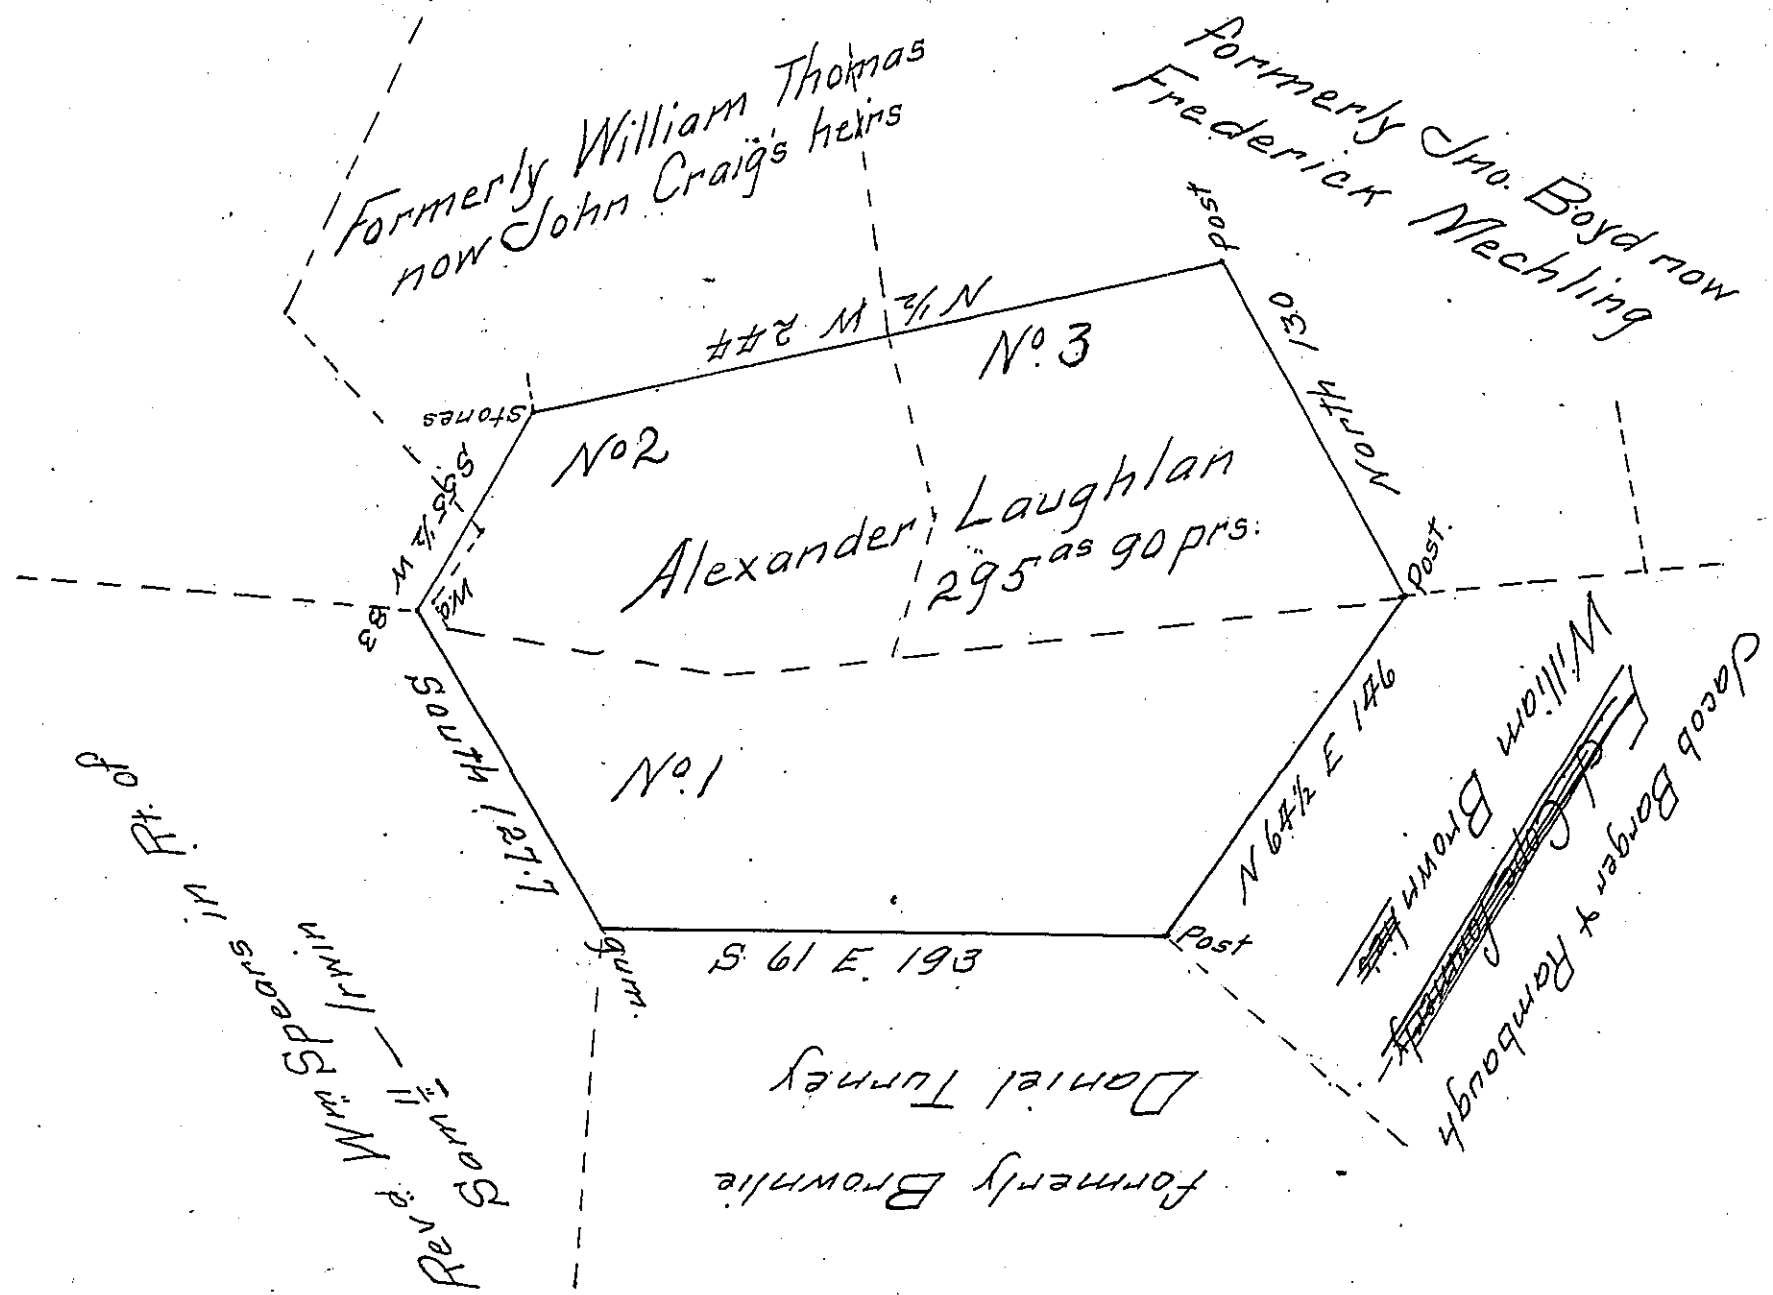 Formerly William Thomas
now John Craig's heirs
formerly Jno. Boyd now
Frederick Mechling
Post
N ½ W 244
No. 3
North 130
Stones
No 2
S 55 ½ W
Alexander Laughlan
295 as 90 prs.
Post.
W.o.
83
South 127.7
No. 1
N 64½ E 146
William Brownlie
Jacob Barger & Rambaugh
gum.
S 61 E. 193
Post
Daniel Turney
formerly Brownlie
Revd Wm Spears in Rt. of
Saml — Irwin